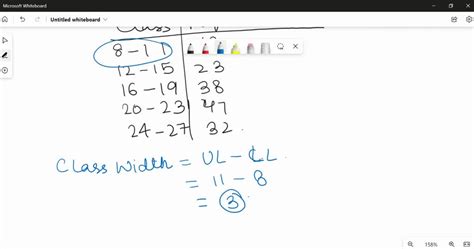 Microsoft Whiteboard
Untitled whiteboard
Class
8-11
12-15 23
16-19 38
20-23 47
24-27 32
Class Width = UL - LL
= 11 - 8
= 3
158%